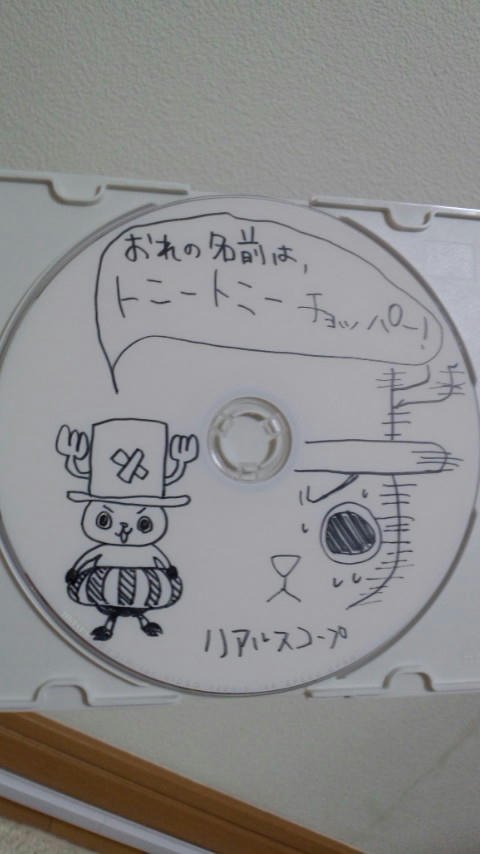 おれの名前は、
トニートミーチョッパー!
リアルスコープ